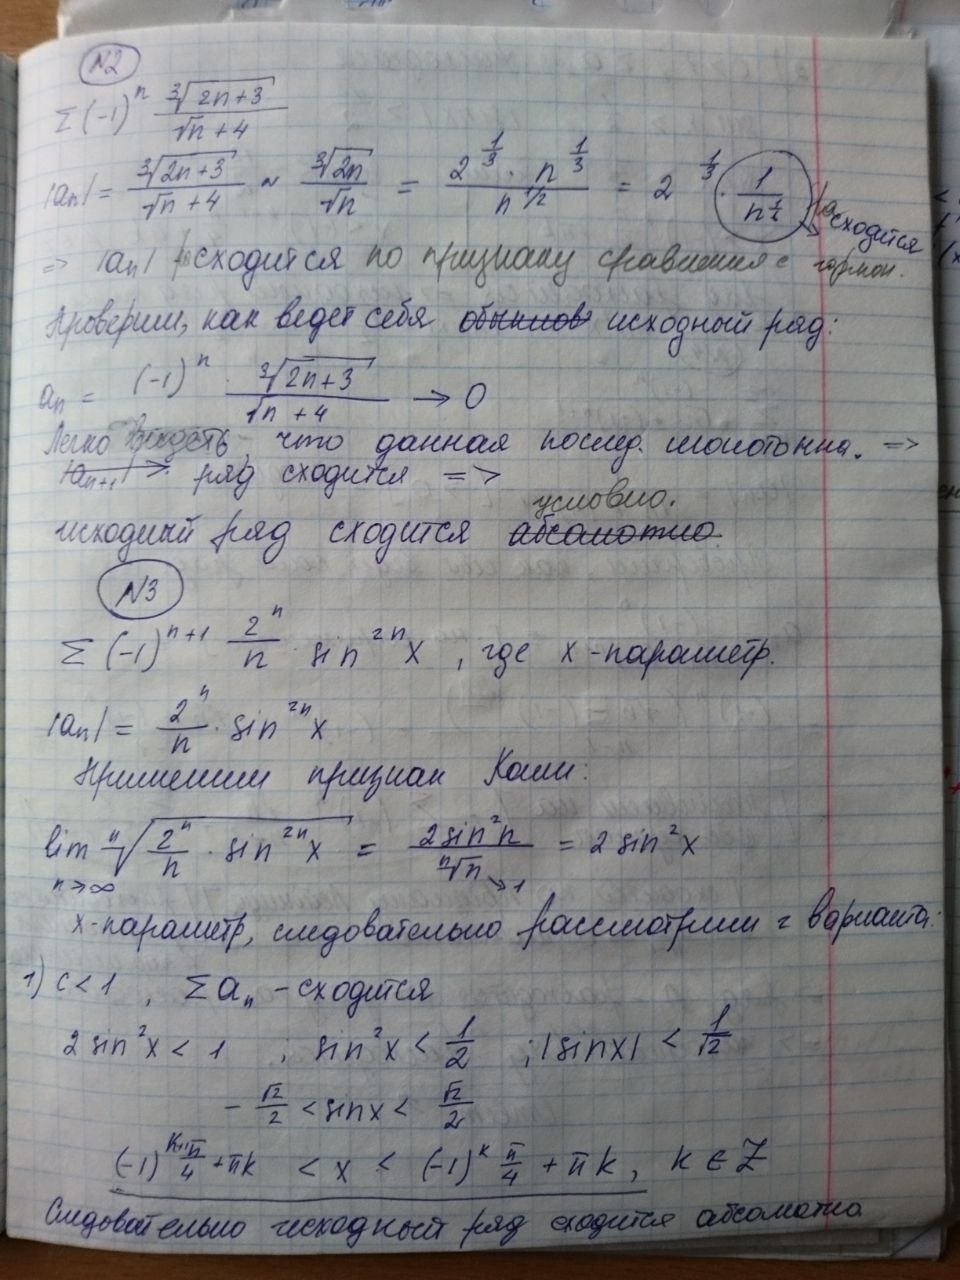 N2
Σ (-1)^n ∛(2n+3) / (√n + 4)
|an| = ∛(2n+3) / (√n + 4) ~ ∛(2n) / √n = 2^(1/3) · n^(1/3) / n^(1/2) = 2^(1/3) · 1 / n^
сходится
=> |an| расходится по признаку сравнения с гармон.
Проверим, как ведет себя исходный ряд:
an = (-1)^n · ∛(2n+3) / (√n + 4) → 0
Легко видеть, что данная послед. монотонна. =>
ряд сходится =>
условно.
исходный ряд сходится абсолютно
N3
Σ (-1)^(n+1) 2^n / n · sin^(2n) x , где x - параметр.
|an| = 2^n / n · sin^(2n) x
Применим признак Коши:
lim n→∞ ⁿ√(2^n / n · sin^(2n) x) = 2sin²n / ⁿ√n →1 = 2 sin² x
x-параметр, следовательно рассмотрим варианта:
1) c < 1 , Σ an - сходится
2 sin² x < 1 ; sin² x < 1/2 ; |sin x| < 1/√2
- √2/2 < sin x < √2/2
(-1)^(k+1) π/4 + πk < x < (-1)^k π/4 + πk, k ∈ Z
Следовательно исходный ряд сходится абсолютно